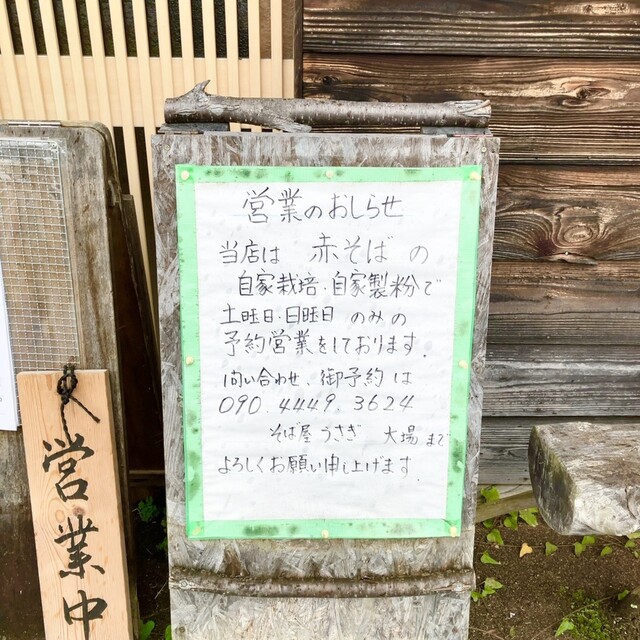 営業のおしらせ
当店は 赤そばの
自家栽培・自家製粉で
土曜日・日曜日 のみの
予約営業をしております。
問い合わせ、御予約は
090.4449.3624
そば屋うさぎ 大場まで
よろしくお願い申し上げます。
営業中